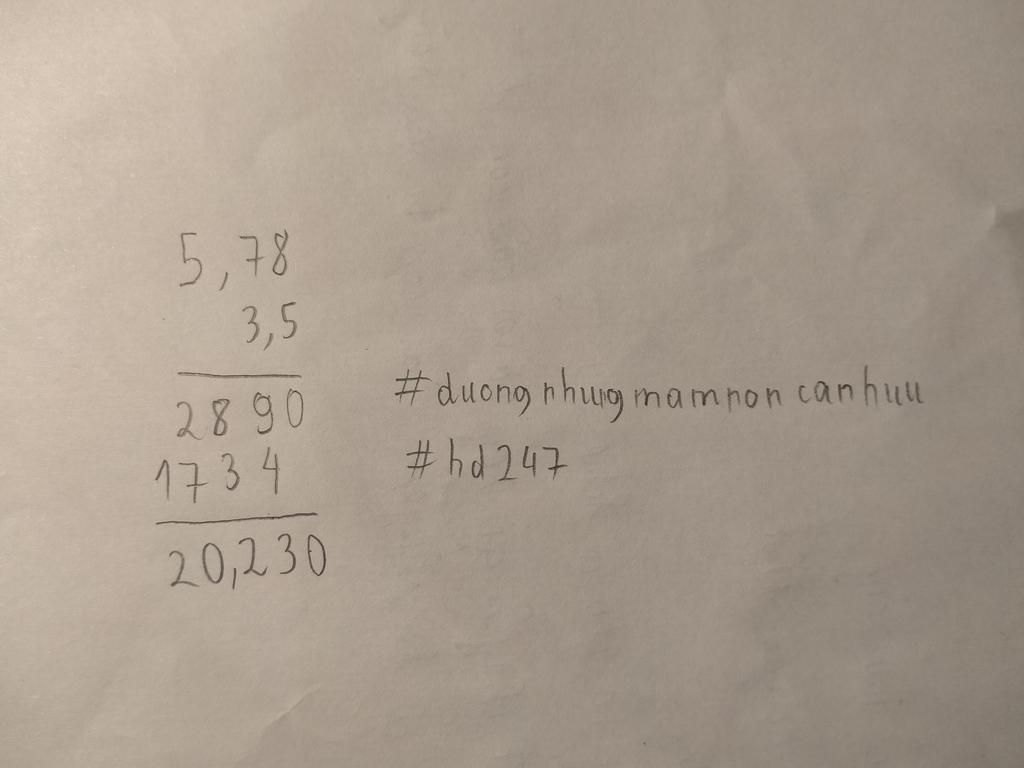 5,78
3,5
2890
1734
20,230
#duongnhungmamnoncanhuu
#hd247